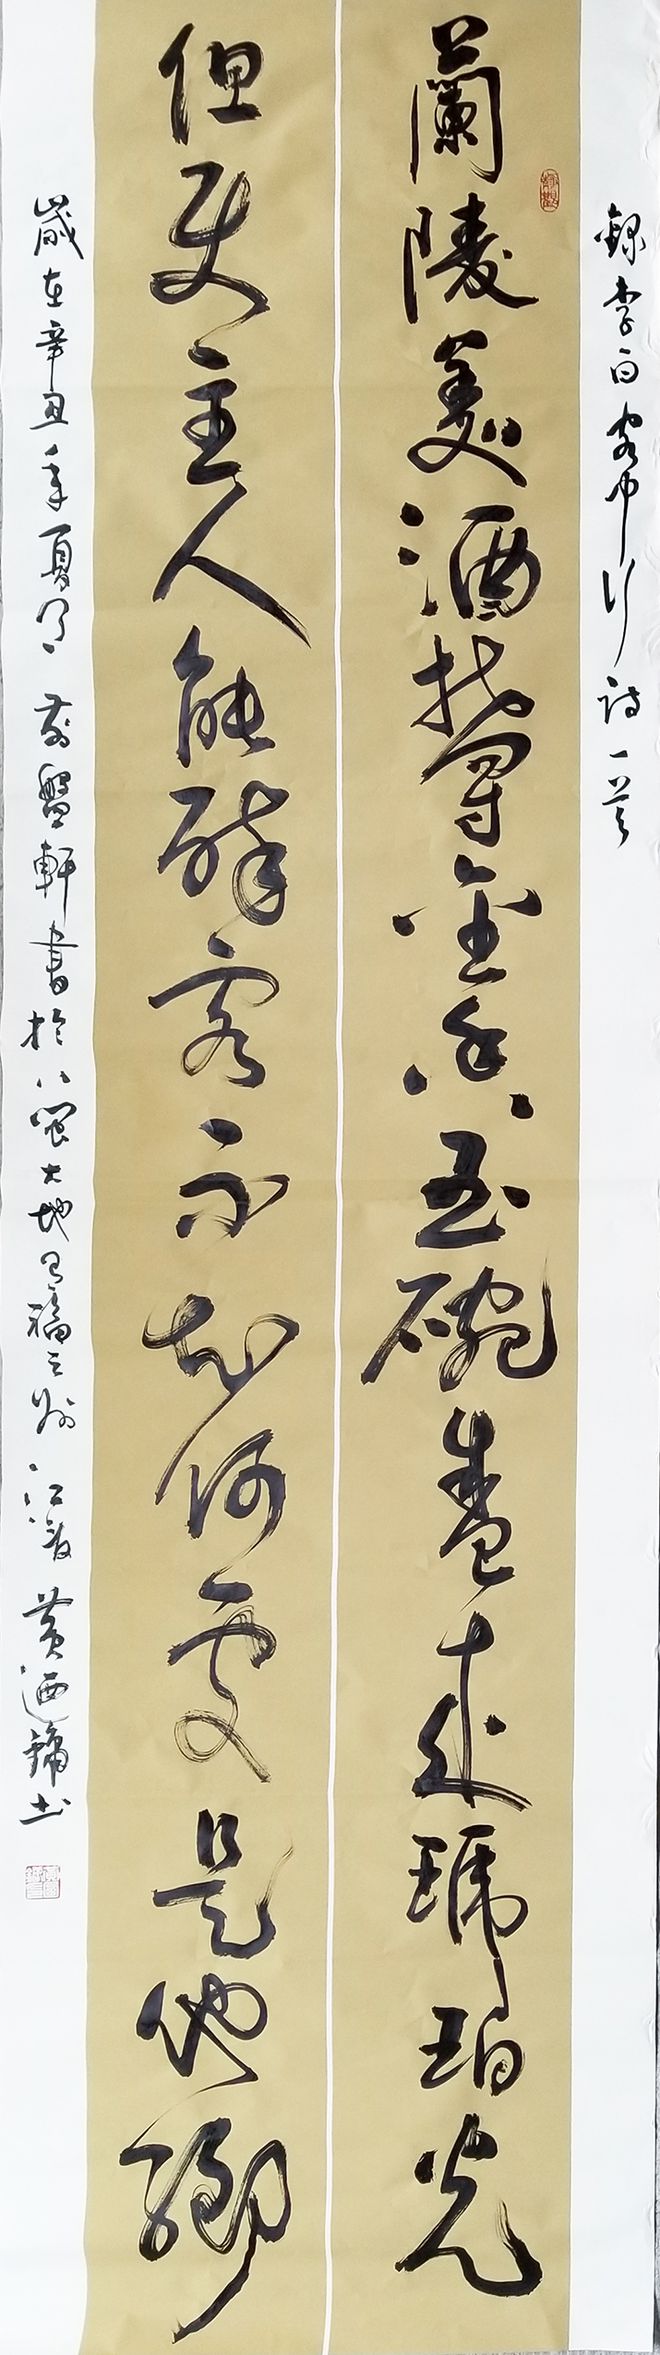 錄李白客中行詩一首
蘭陵美酒鬱金香玉碗盛來琥珀光
但使主人能醉客不知何處是他鄉
歲在辛丑年夏月 盤軒書於八閩大地有福之州江 黃迺鏞书